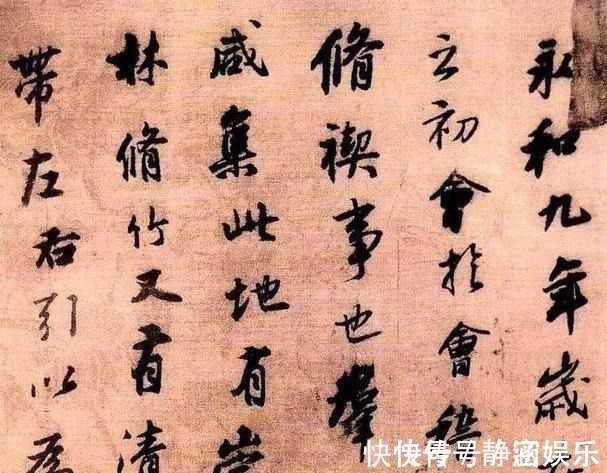 永和九年歳
之初會於會稽
脩禊事也羣
咸集此地有崇
林脩竹又有清
帶左右引以為
快传号 静涵娱乐